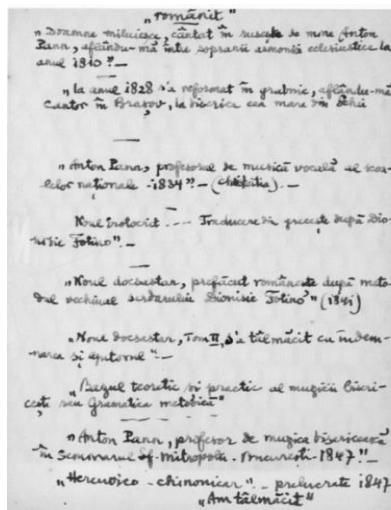 „românit"
„Doamne miluiesce, cântat în de mine Anton
Pann, aflându-mă între sopranii armonii eclesiastice la
anul 1810"—
„la anul 1828 s'a reformat în grabnic, aflându-mă
cantor în Brașov, la biserica cea mare din Schei
„Anton Pann, profesorul de musică vocală al scoa-
lelor naționale - 1834"—
Noul Irotocrit ---- Traducere din grecește după Dio-
nisie Fotino"—
„Noul docsastar, prefăcut românește după meto-
dul vechiul serdarului Dionisie Fotino" (1841)
„Noul docsastar, Tom II, s'a tâlmăcit cu îndem-
narea și ajutorul"—
„Bazul teoretic și practic al muzicii biseri-
cești sau Gramatica melodică"
„Anton Pann, profesor de muzica bisericească
în Seminarul Sf. Mitropolii - București - 1847"—
„Heruvico - chinonicar" - prelucrate 1847
„Am tâlmăcit"